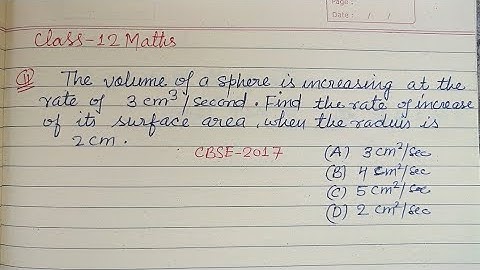 Page :
Date : / /
Class-12 Maths
11 The volume of a sphere is increasing at the
rate of 3 cm³/second. Find the rate of increase
of its surface area, when the raduis is
2 cm.
CBSE-2017
(A) 3 cm²/sec
(B) 4 cm²/sec
(C) 5 cm²/sec
(D) 2 cm²/sec